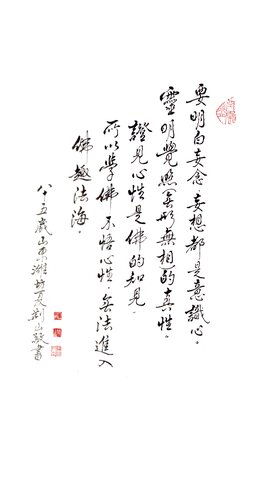 要明白妄念、妄想都是意識心。
靈明覺照無形無相的真性。
證見心性是佛的知見。
所以學佛不悟心性，無法進入
佛趣法海。
八十五歲山東濰坊夏荆山敬書